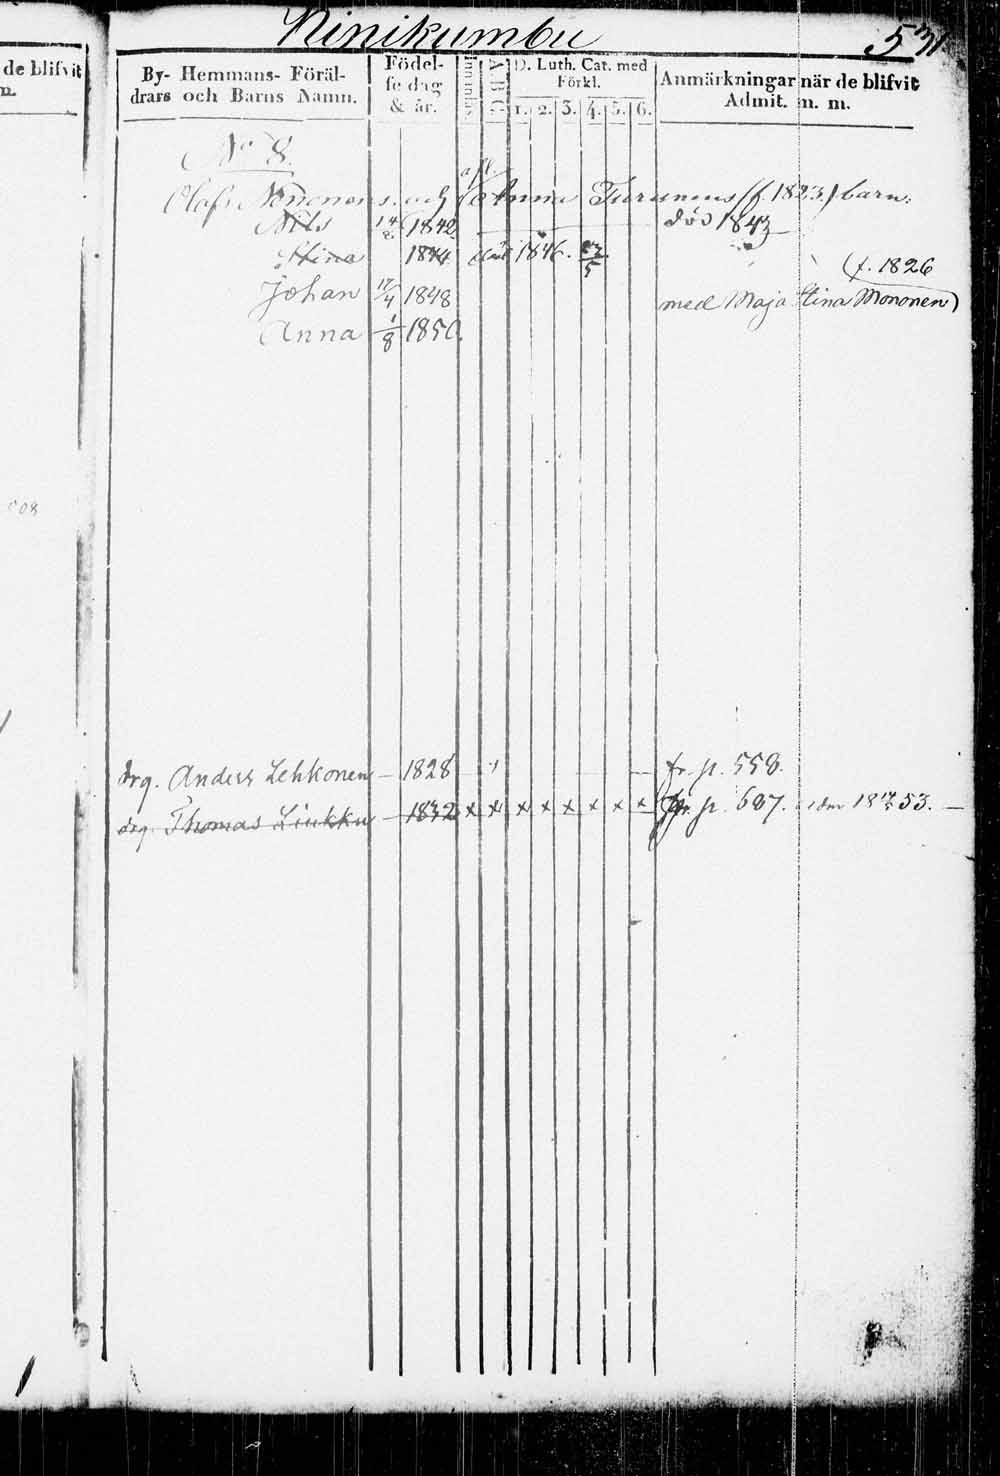 Ninikumbu 531
de blifvit
m.
By- Hemmans- Föräl-
drars och Barns Namn.
Födel-
se dag
& år.
A B C
D. Luth. Cat. med
Förkl.
1. 2. 3. 4. 5. 6.
Anmärkningar när de blifvit
Admit. m. m.
No 8.
afl.
Olof Nenonens och Anna Turunens (f. 1823.) barn:
Nils 14/8 1842 död 1843
Stina 1844 död 1846. 27/5
(f. 1826
Johan 17/4 1848 med Maja Stina Mononen)
Anna 1/8 1850.
drg. Anders Lehkonen 1828 fr. p. 558.
drg. Thomas Liukku 1832 x x x x x x x x fr. p. 687. 53.